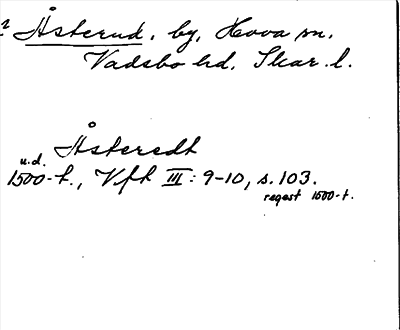 Åsterud, by, Hova sn.
Vadsbo hd. Skar. l.
Åsteredt
u.d.
1500-t., Vfk III: 9-10, s. 103.
regest 1600-t.